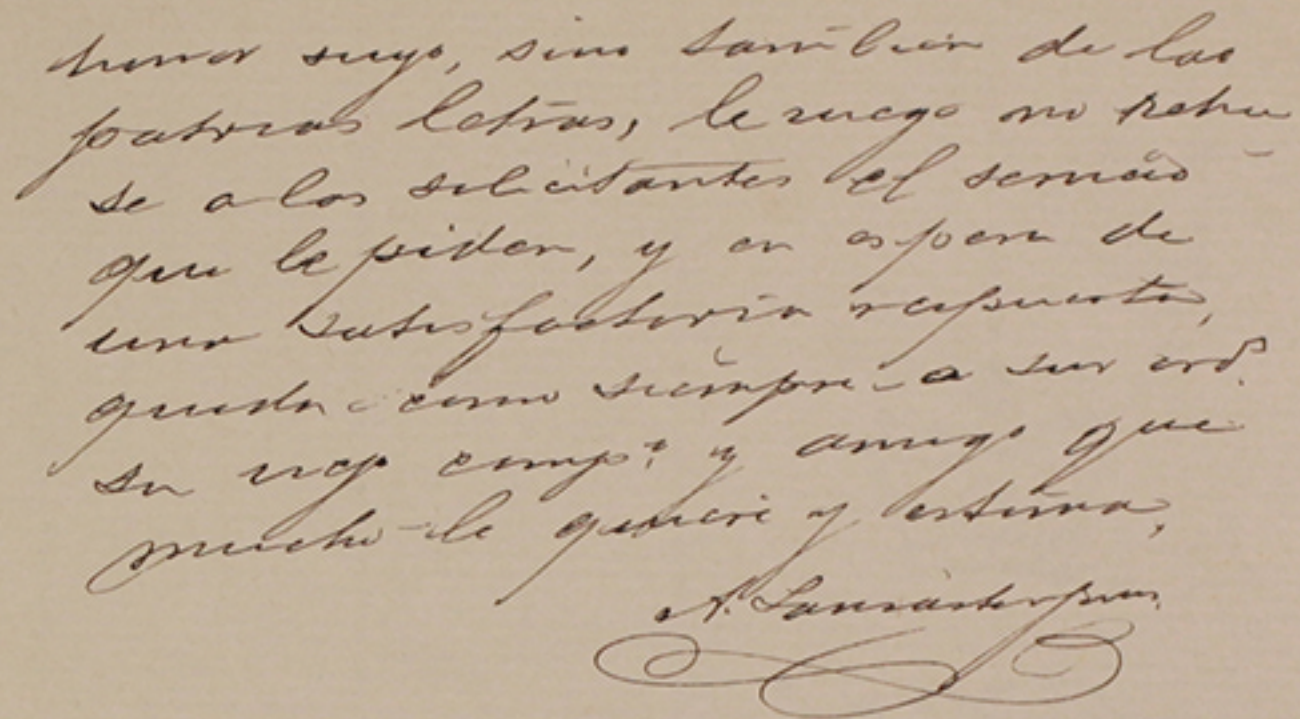 honor suyo, sino tambien de las
patrias letras, le ruego no rehu
se a los solicitantes el servicio
que le piden, y en espera de
una satisfactoria respuesta,
queda como siempre a sus ord.
su viejo comp.º y amigo que
mucho le quiere y estima,
A. Lancaster Jones